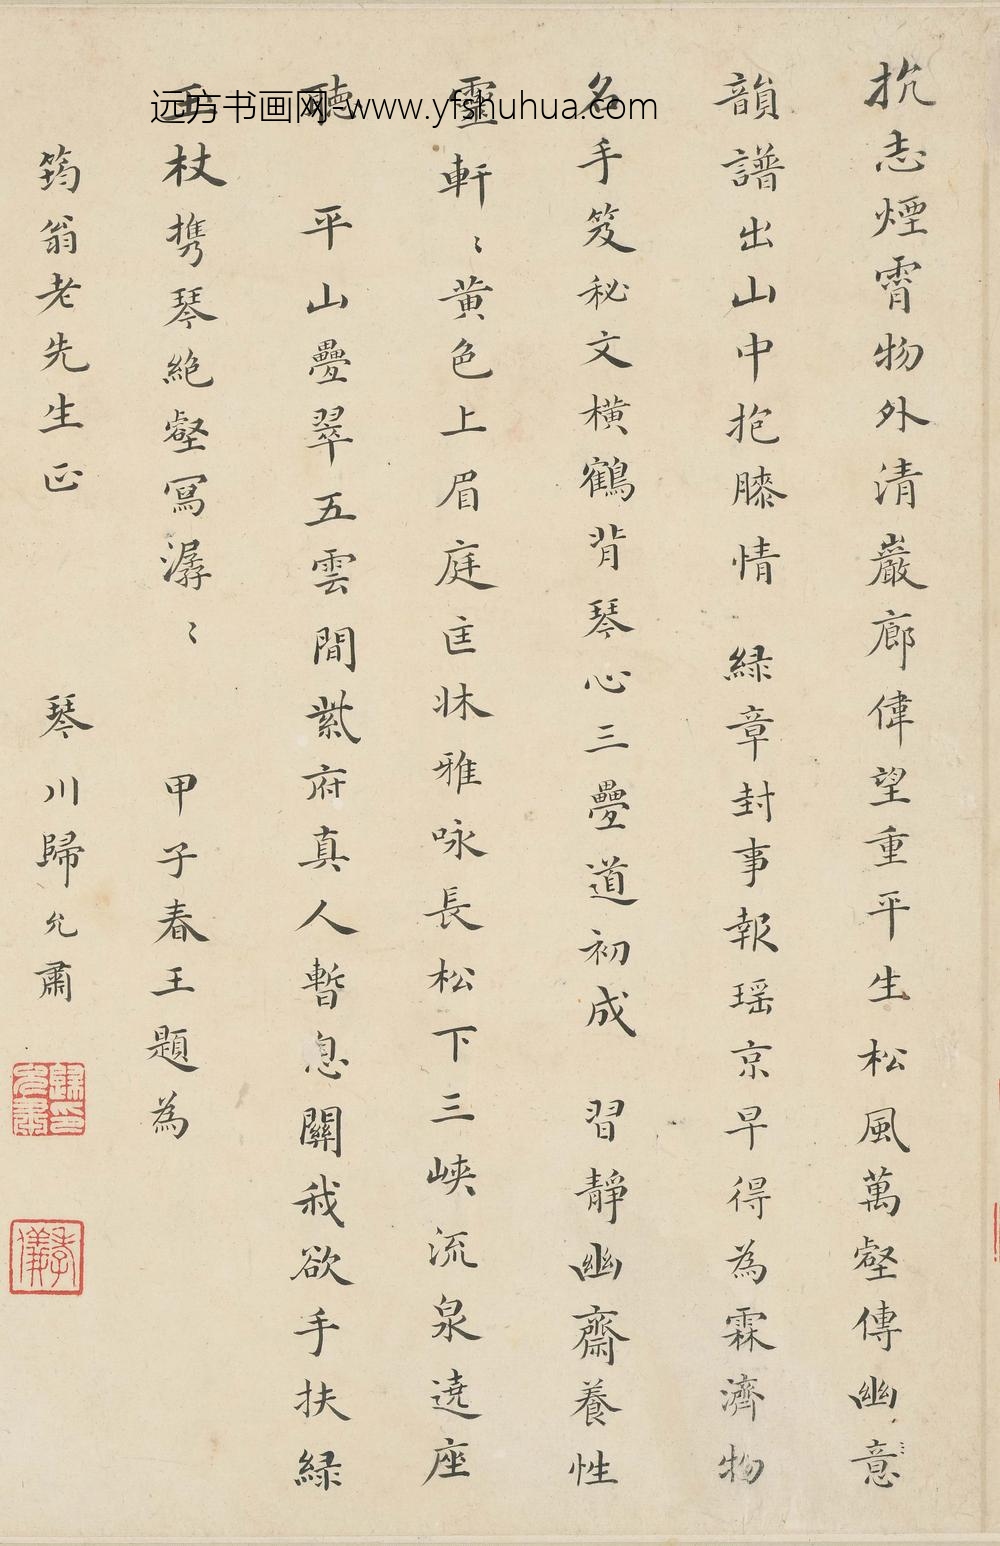 抗志煙霄物外清巖廊偉望重平生松風萬壑傳幽意
韻譜出山中抱膝情　緑章封事報瑶京早得為霖濟物
名手笈秘文橫鶴背琴心三疊道初成　習靜幽齋養性
靈軒〻黃色上眉庭匡牀雅咏長松下三峽流泉遶座
聽　平山疊翠五雲間紫府真人暫息關我欲手扶緑
玉杖携琴絶壑寫潺〻　甲子春王題為
筠翁老先生正　琴川歸允肅
歸允肅印
孝儀
远方书画网-www.yfshuhua.com